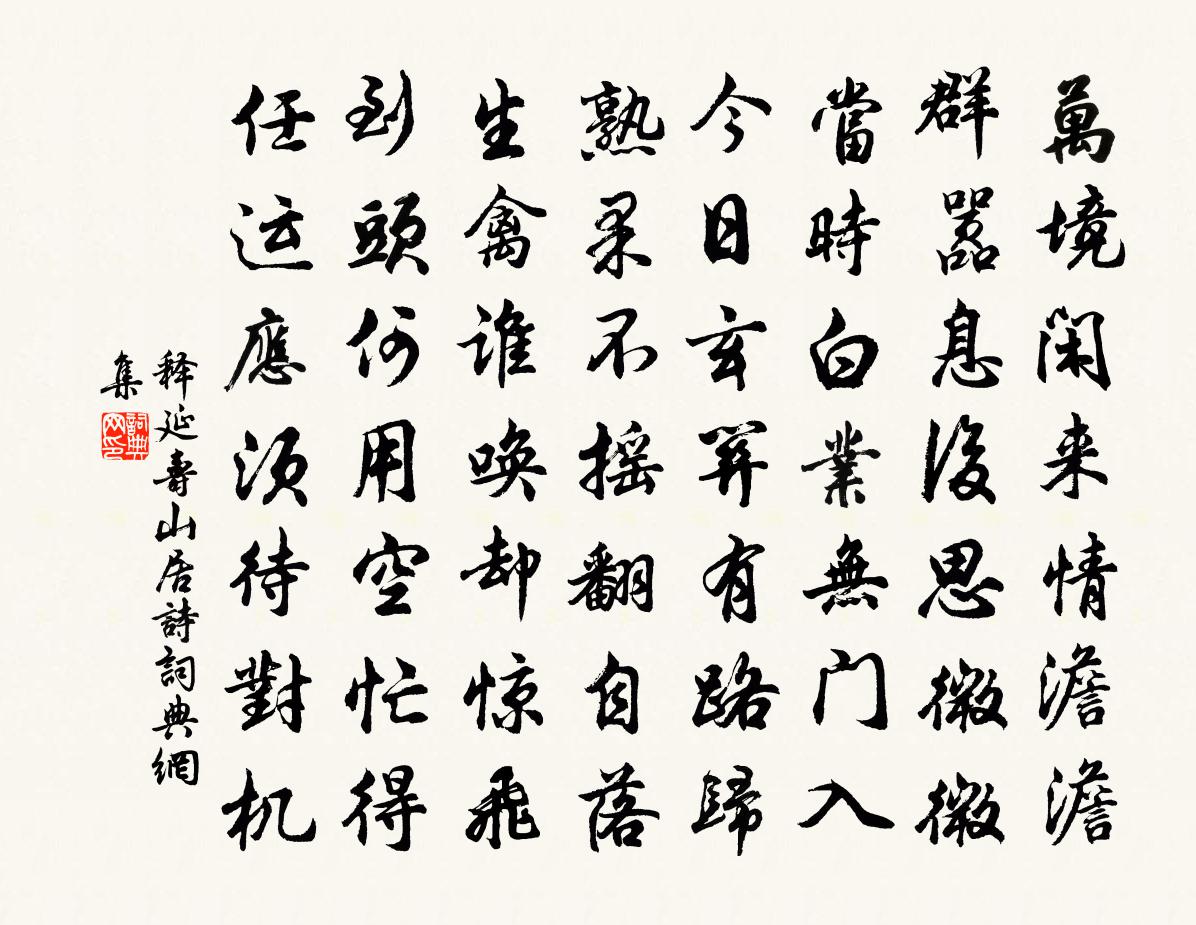 萬境閑来情澹澹
群嚣息後思微微
當時白業無门入
今日玄關有路歸
熟果不摇翻自落
生禽谁唤却惊飛
到頭何用空忙得
任运應须待對机
释延壽山居詩詞典網
集
詞典
网印